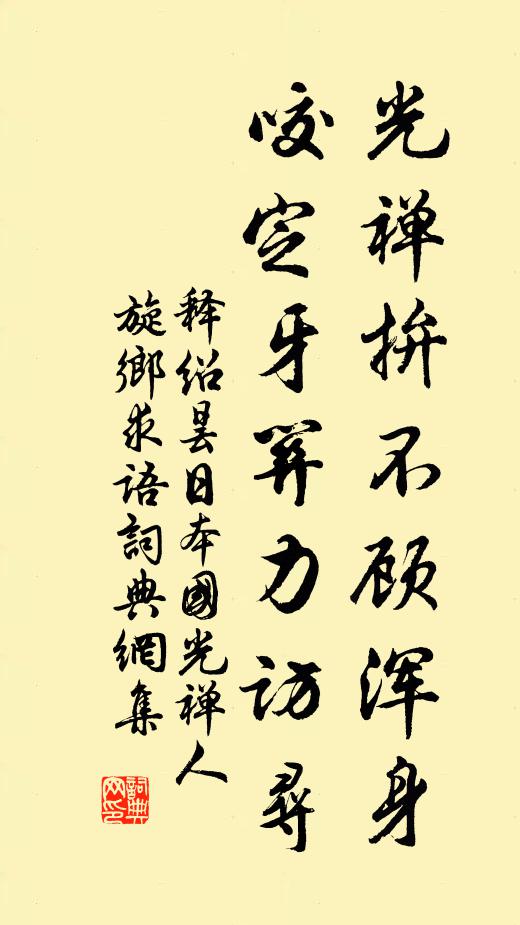 光禅拚不顾浑身
咬定牙关力访尋
释绍昙日本國光禅人
旋鄉求语詞典網集
詞典网印